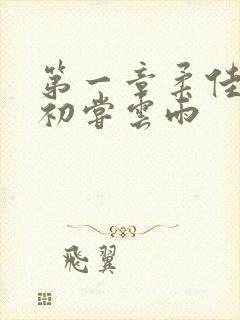 第一章柔佳
初嘗雲雨
飛翼